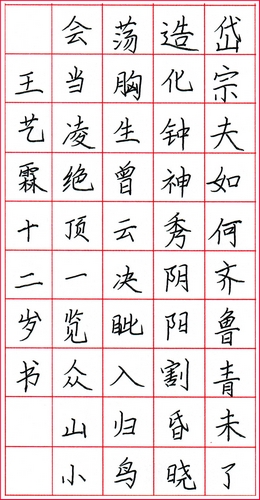 岱宗夫如何齐鲁青未了
造化钟神秀阴阳割昏晓
荡胸生曾云决眦入归鸟
会当凌绝顶一览众山小
王艺霖十二岁书